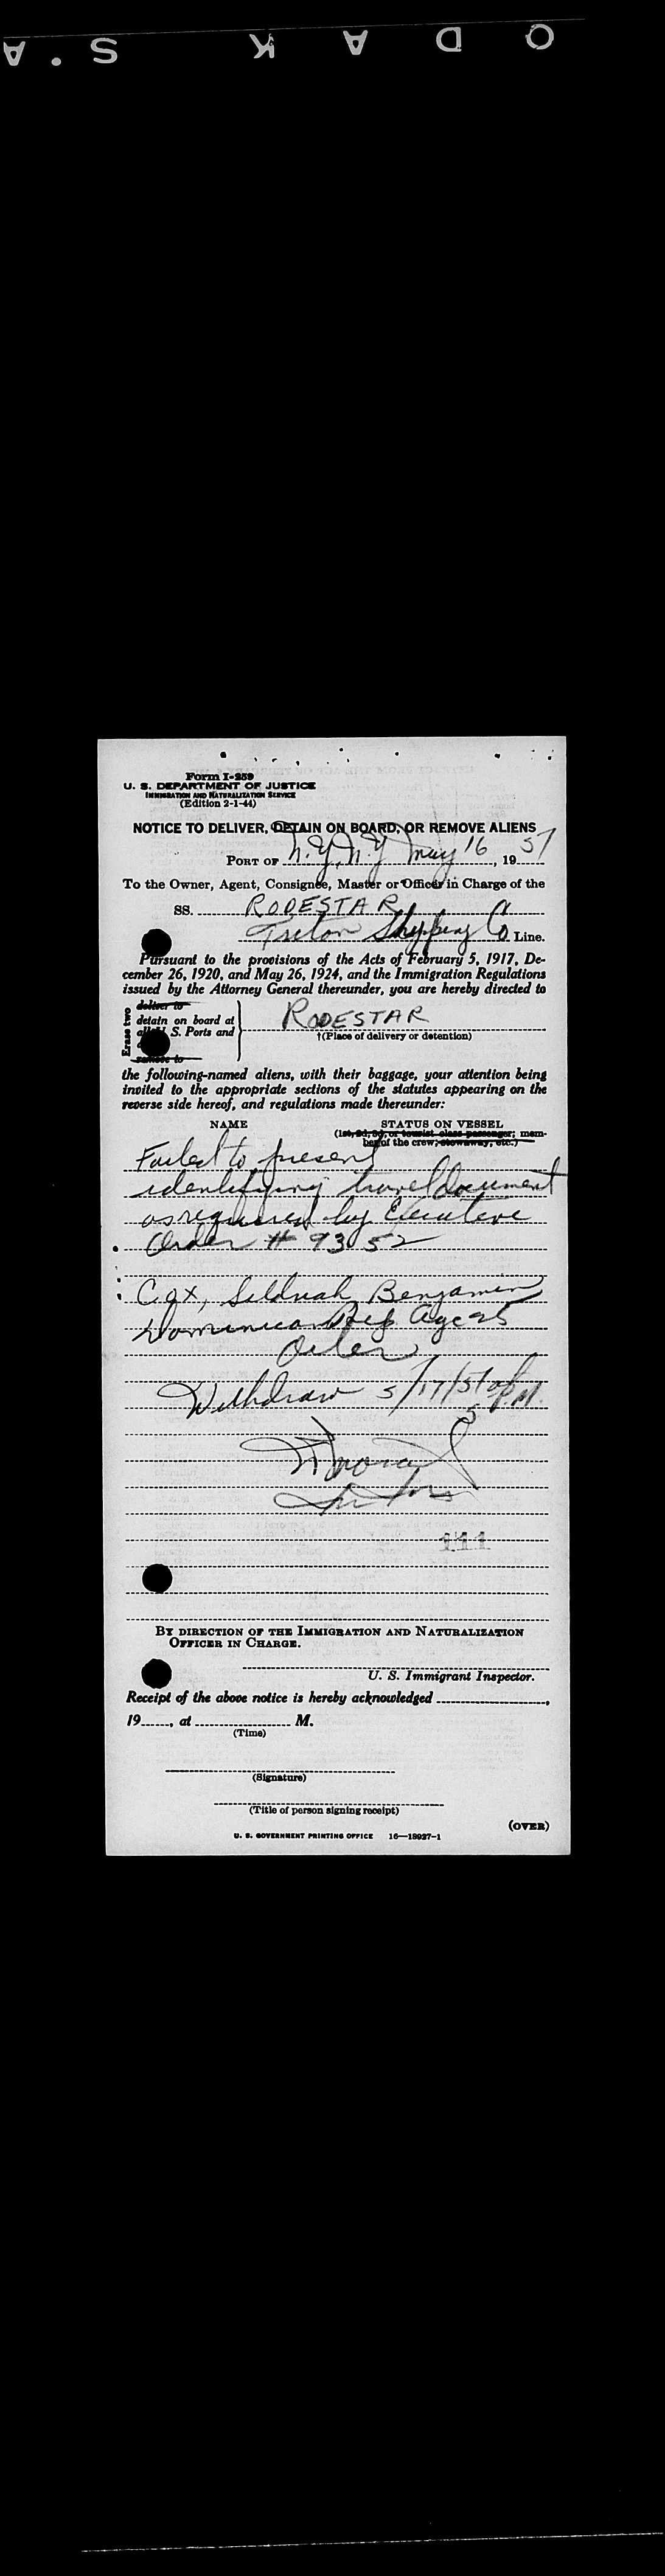 Form I-259
U. S. DEPARTMENT OF JUSTICE
IMMIGRATION AND NATURALIZATION SERVICE
(Edition 2-1-44)
NOTICE TO DELIVER, DETAIN ON BOARD, OR REMOVE ALIENS
PORT OF N.Y. N.Y. May 16, 1951
To the Owner, Agent, Consignee, Master or Officer in Charge of the
SS. RODESTAR
Triton Shipping Co. Line.
Pursuant to the provisions of the Acts of February 5, 1917, De-
cember 26, 1920, and May 26, 1924, and the Immigration Regulations
issued by the Attorney General thereunder, you are hereby directed to
Erase two
deliver to
detain on board at
all U. S. Ports and
remove to
RODESTAR
†(Place of delivery or detention)
the following-named aliens, with their baggage, your attention being
invited to the appropriate sections of the statutes appearing on the
reverse side hereof, and regulations made thereunder:
NAME STATUS ON VESSEL
(1st, 2d, 3d, or tourist class passenger; mem-
ber of the crew; stowaway, etc.)
Failed to present
identifying travel document
as required by Executive
Order # 9352
Cox, Benjamin
Dominican Rep age 25
Oiler
Withdraw 5/17/51 P.M.
111
BY DIRECTION OF THE IMMIGRATION AND NATURALIZATION
OFFICER IN CHARGE.
U. S. Immigrant Inspector.
Receipt of the above notice is hereby acknowledged ,
19 , at M.
(Time)
(Signature)
(Title of person signing receipt)
(OVER)
U. S. GOVERNMENT PRINTING OFFICE 16—18927-1